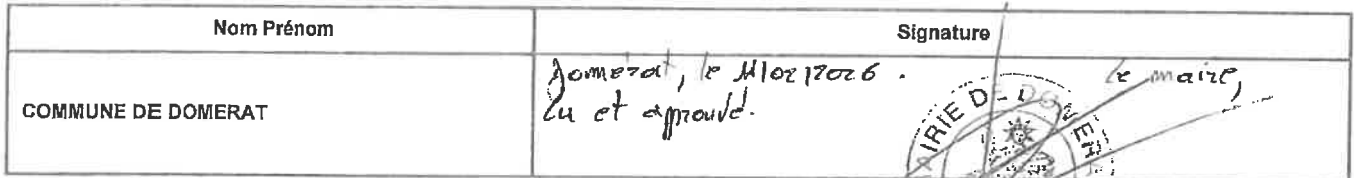 Nom Prénom
Signature
COMMUNE DE DOMERAT
Domerat, le 11/02/2026.
le maire,
Lu et approuvé.
MAIRIE DE DOMER